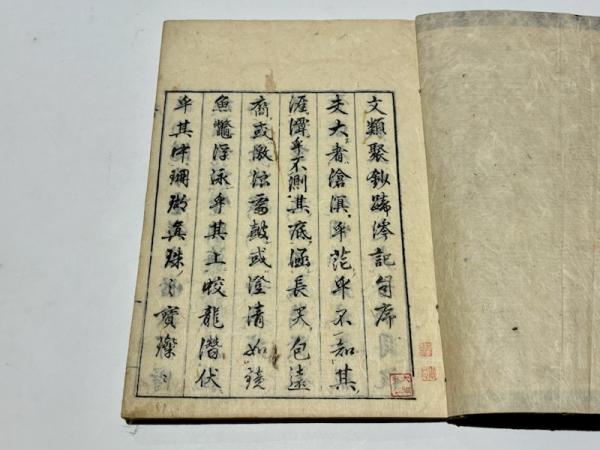 文類聚鈔蹄涔記自序
夫大者滄溟乎茫乎不知其
涯潭乎不測其底涵長天包遠
裔或激流奮鼓或澄清如鏡
魚鼈浮泳乎其上蛟龍潛伏
乎其中珊瑚真珠之寶璨